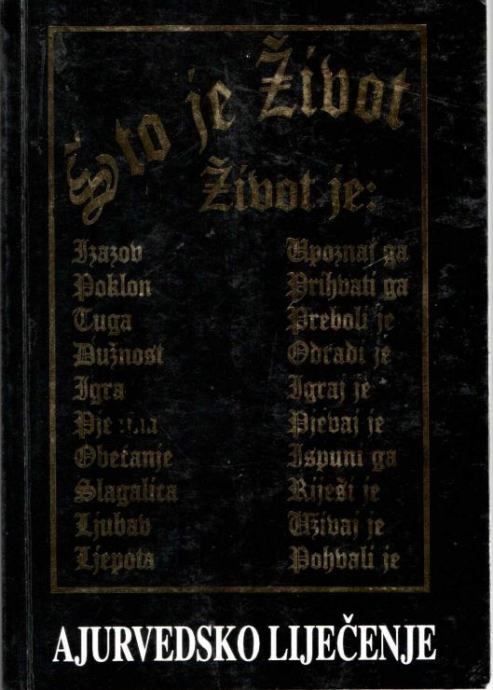 Što je Život
Život je:
Izazov Upoznaj ga
Poklon Prihvati ga
Tuga Preboli je
Dužnost Odradi je
Igra Igraj je
Pjevaj je
Obećanje Ispuni ga
Slagalica Riješi je
Ljubav Uživaj je
Ljepota Pohvali je
AJURVEDSKO LIJEČENJE